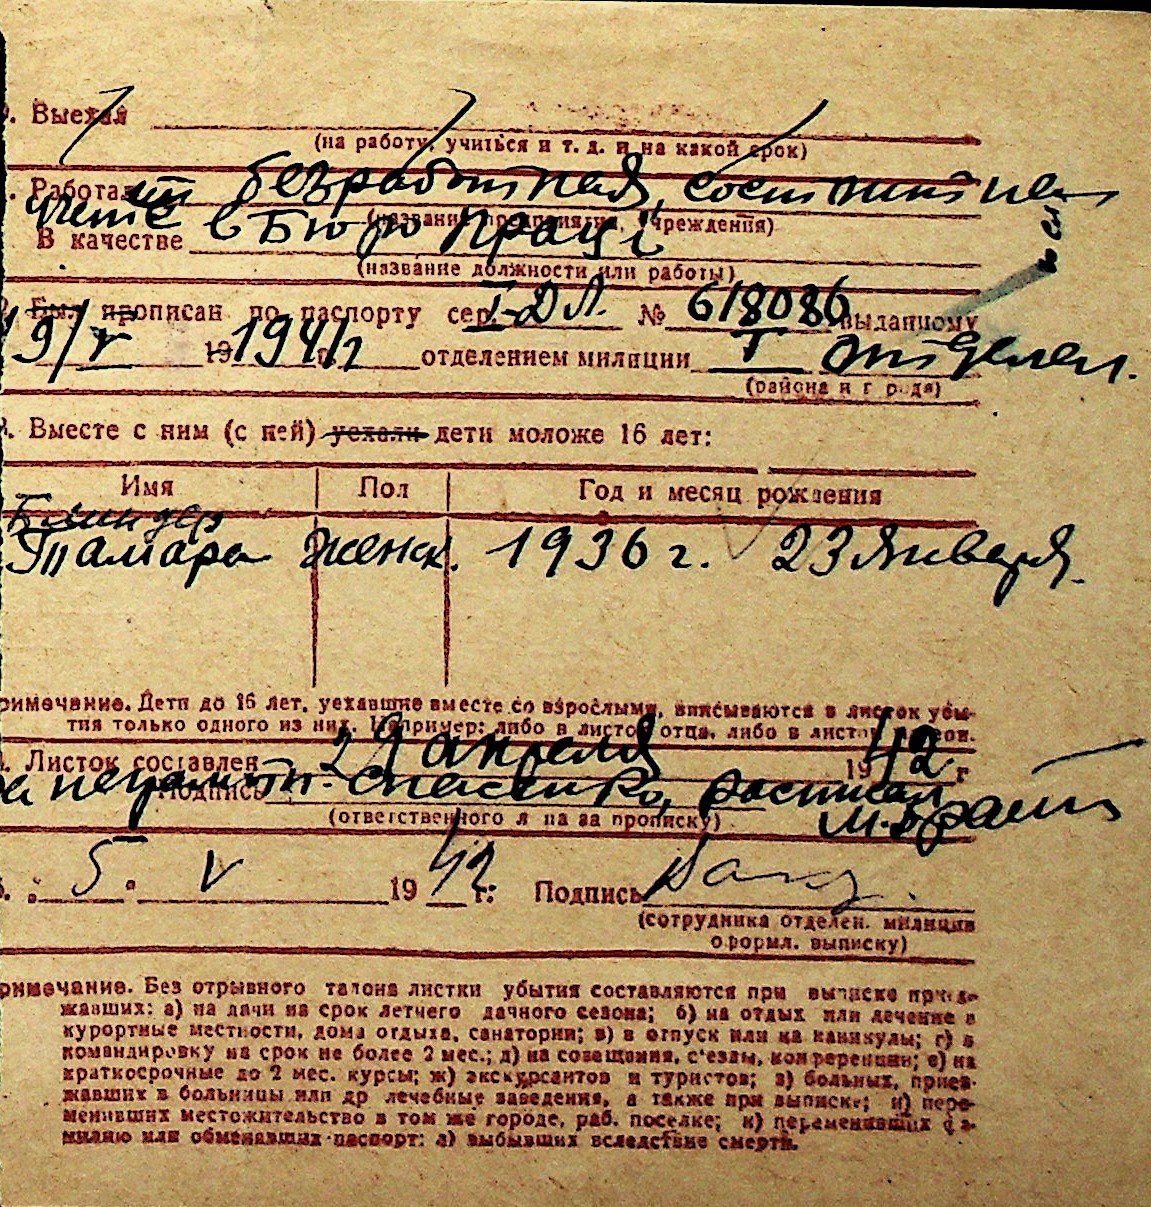 . Выехал
(на работу, учиться и т. д. и на какой срок)
. Работает безработная, состоит на
учете в Бюро Праці
(название предприятия, учреждения)
В качестве
(название должности или работы)
Был прописан по паспорту сер. I-ДЛ. № 618086 выданному
19/V 19 1941/2 г. отделением милиции I отделен.
(района и города)
. Вместе с ним (с ней) уехали дети моложе 16 лет:
Имя Пол Год и месяц рождения
Блиндер
Тамара женск. 1936 г. 23 Января.
римечание. Дети до 16 лет, уехавшие вместе со взрослыми, вписываются в листок убы-
тия только одного из них. Например: либо в листок отца, либо в листок матери.
. Листок составлен 29 апреля 1942 г
Подпись
(ответственного лица за прописку)
. 5. V 1942 г. Подпись
(сотрудника отделен. милиции
оформл. выписку)
римечание. Без отрывного талона листки убытия составляются при выписке приез-
жавших: а) на дачи на срок летнего дачного сезона; б) на отдых или лечение в
курортные местности, дома отдыха, санатории; в) в отпуск или на каникулы; г) в
командировку на срок не более 2 мес.; д) на совещания, с'езды, конференции; е) на
краткосрочные до 2 мес. курсы; ж) экскурсантов и туристов; з) больных, приез-
жавших в больницы или др лечебные заведения, а также при выписке; и) пере-
менивших местожительство в том же городе, раб. поселке; к) переменивших фа-
милию или обменявших паспорт: л) выбывших вследствие смерти.